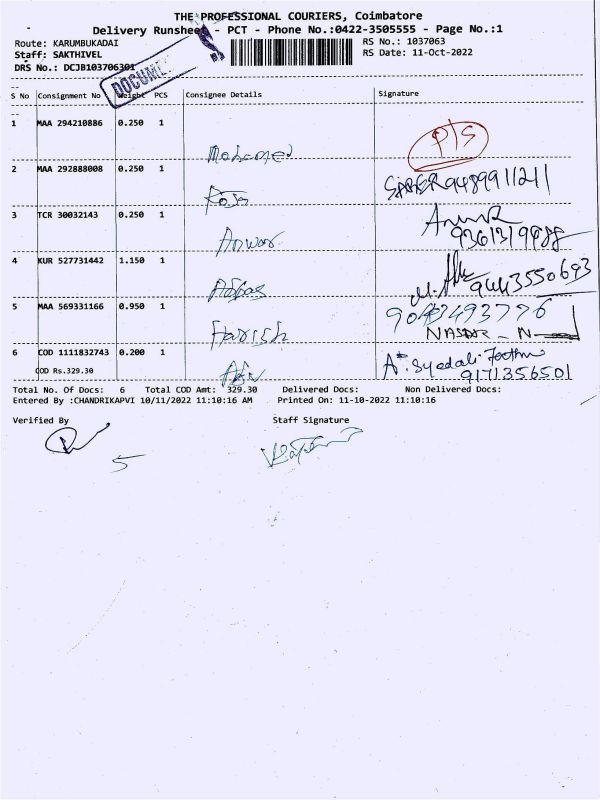 THE PROFESSIONAL COURIERS, Coimbatore
Delivery Runsheet - PCT - Phone No.:0422-3505555 - Page No.:1
Route: KARUMBUKADAI RS No.: 1037063
Staff: SAKTHIVEL RS Date: 11-Oct-2022
DRS No.: DCJB103706301
S No Consignment No Weight PCS Consignee Details Signature
1 MAA 294210886 0.250 1 P/S
Mohamed
2 MAA 292888008 0.250 1 SABER 9489911211
Roja
3 TCR 30032143 0.250 1
Anwar 9361319988
4 KUR 527731442 1.150 1
Abbas 9443550693
5 MAA 569331166 0.950 1 9043493776
Harish NASAR - N
6 COD 1111832743 0.200 1 Syedali
COD Rs.329.30 9171356501
Total No. Of Docs: 6 Total COD Amt: 329.30 Delivered Docs: Non Delivered Docs:
Entered By :CHANDRIKAPVI 10/11/2022 11:10:16 AM Printed On: 11-10-2022 11:10:16
Verified By Staff Signature
5